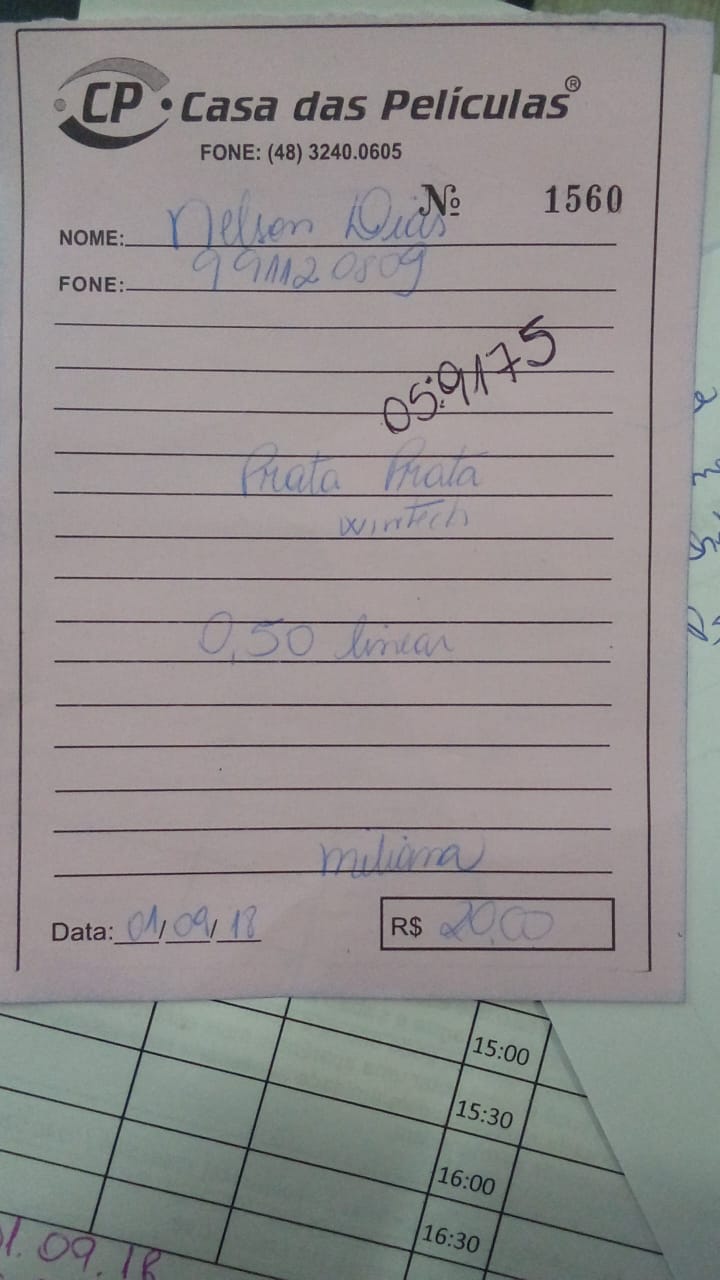 CP Casa das Películas®
FONE: (48) 3240.0605
Nº 1560
NOME: Nelson Dias
FONE: 991120809
05:9175
Prata Prata
wintech
0,50 linear
miliana
Data: 01/09/18 R$ 20,00
15:00
15:30
16:00
16:30
01.09.18